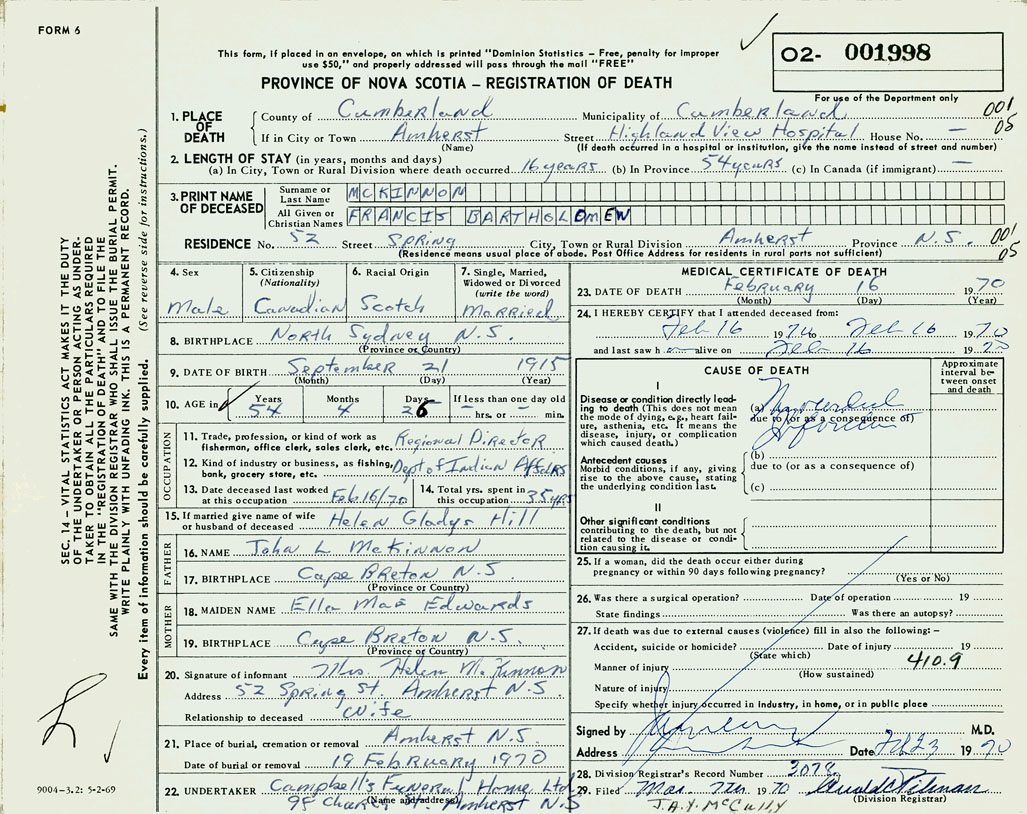 FORM 6
This form, if placed in an envelope, on which is printed "Dominion Statistics – Free, penalty for improper
use $50," and properly addressed will pass through the mail "FREE"
PROVINCE OF NOVA SCOTIA – REGISTRATION OF DEATH
02- 001998
For use of the Department only
1. PLACE OF DEATH
County of Cumberland Municipality of Cumberland 001
If in City or Town Amherst Street Highland View Hospital House No. – 05
(Name) (If death occurred in a hospital or institution, give the name instead of street and number)
2. LENGTH OF STAY (in years, months and days)
(a) In City, Town or Rural Division where death occurred 16 years (b) In Province 54 years (c) In Canada (if immigrant) –
3. PRINT NAME OF DECEASED
Surname or Last Name MCKINNON
All Given or Christian Names FRANCIS BARTHOLOMEW
RESIDENCE No. 52 Street Spring City, Town or Rural Division Amherst Province N.S. 001
(Residence means usual place of abode. Post Office Address for residents in rural parts not sufficient) 05
4. Sex
Male
5. Citizenship
(Nationality)
Canadian
6. Racial Origin
Scotch
7. Single, Married,
Widowed or Divorced
(write the word)
Married
8. BIRTHPLACE North Sydney N.S.
(Province or Country)
9. DATE OF BIRTH September 21 1915
(Month) (Day) (Year)
10. AGE in
Years 54
Months 4
Days 26
If less than one day old
– hrs. or – min.
OCCUPATION
11. Trade, profession, or kind of work as
fisherman, office clerk, sales clerk, etc. Regional Director
12. Kind of industry or business, as fishing,
bank, grocery store, etc. Dept of Indian Affairs
13. Date deceased last worked
at this occupation Feb 16/70
14. Total yrs. spent in
this occupation 35 yrs
15. If married give name of wife
or husband of deceased Helen Gladys Hill
FATHER
16. NAME John L McKinnon
17. BIRTHPLACE Cape Breton N.S.
(Province or Country)
MOTHER
18. MAIDEN NAME Ella Mae Edwards
19. BIRTHPLACE Cape Breton N.S.
(Province or Country)
20. Signature of informant Mrs Helen McKinnon
Address 52 Spring St. Amherst N.S
Relationship to deceased Wife
21. Place of burial, cremation or removal Amherst N.S.
Date of burial or removal 19 February 1970
22. UNDERTAKER Campbell's Funeral Home Ltd
(Name and address) Amherst N.S
MEDICAL CERTIFICATE OF DEATH
23. DATE OF DEATH February 16 1970
(Month) (Day) (Year)
24. I HEREBY CERTIFY that I attended deceased from:
Feb 16 1970 to Feb 16 1970
and last saw h alive on Feb 16 1970
CAUSE OF DEATH
Approximate interval between onset and death
I
Disease or condition directly leading to death (This does not mean the mode of dying, e.g., heart failure, asthenia, etc. It means the disease, injury, or complication which caused death.)
(a) Myocardial
due to (or as a consequence of)
Infarction
Antecedent causes
Morbid conditions, if any, giving rise to the above cause, stating the underlying condition last.
(b)
due to (or as a consequence of)
(c)
II
Other significant conditions
contributing to the death, but not related to the disease or condition causing it.
25. If a woman, did the death occur either during
pregnancy or within 90 days following pregnancy?
(Yes or No)
26. Was there a surgical operation? Date of operation 19
State findings Was there an autopsy?
27. If death was due to external causes (violence) fill in also the following: –
Accident, suicide or homicide? Date of injury 19
(State which) 410.9
Manner of injury
(How sustained)
Nature of injury
Specify whether injury occurred in industry, in home, or in public place
Signed by M.D.
Address Date Feb 23 1970
28. Division Registrar's Record Number 3078
29. Filed Mar. 1970
(Division Registrar)
J.A.Y. McCully
SEC. 14 – VITAL STATISTICS ACT MAKES IT THE DUTY
OF THE UNDERTAKER OR PERSON ACTING AS UNDERTAKER TO OBTAIN ALL THE PARTICULARS REQUIRED
IN THE "REGISTRATION OF DEATH" AND TO FILE THE
SAME WITH THE DIVISION REGISTRAR WHO SHALL ISSUE THE BURIAL PERMIT.
WRITE PLAINLY WITH UNFADING INK. THIS IS A PERMANENT RECORD.
Every item of information should be carefully supplied. (See reverse side for instructions.)
9004-3.2: 5-2-69